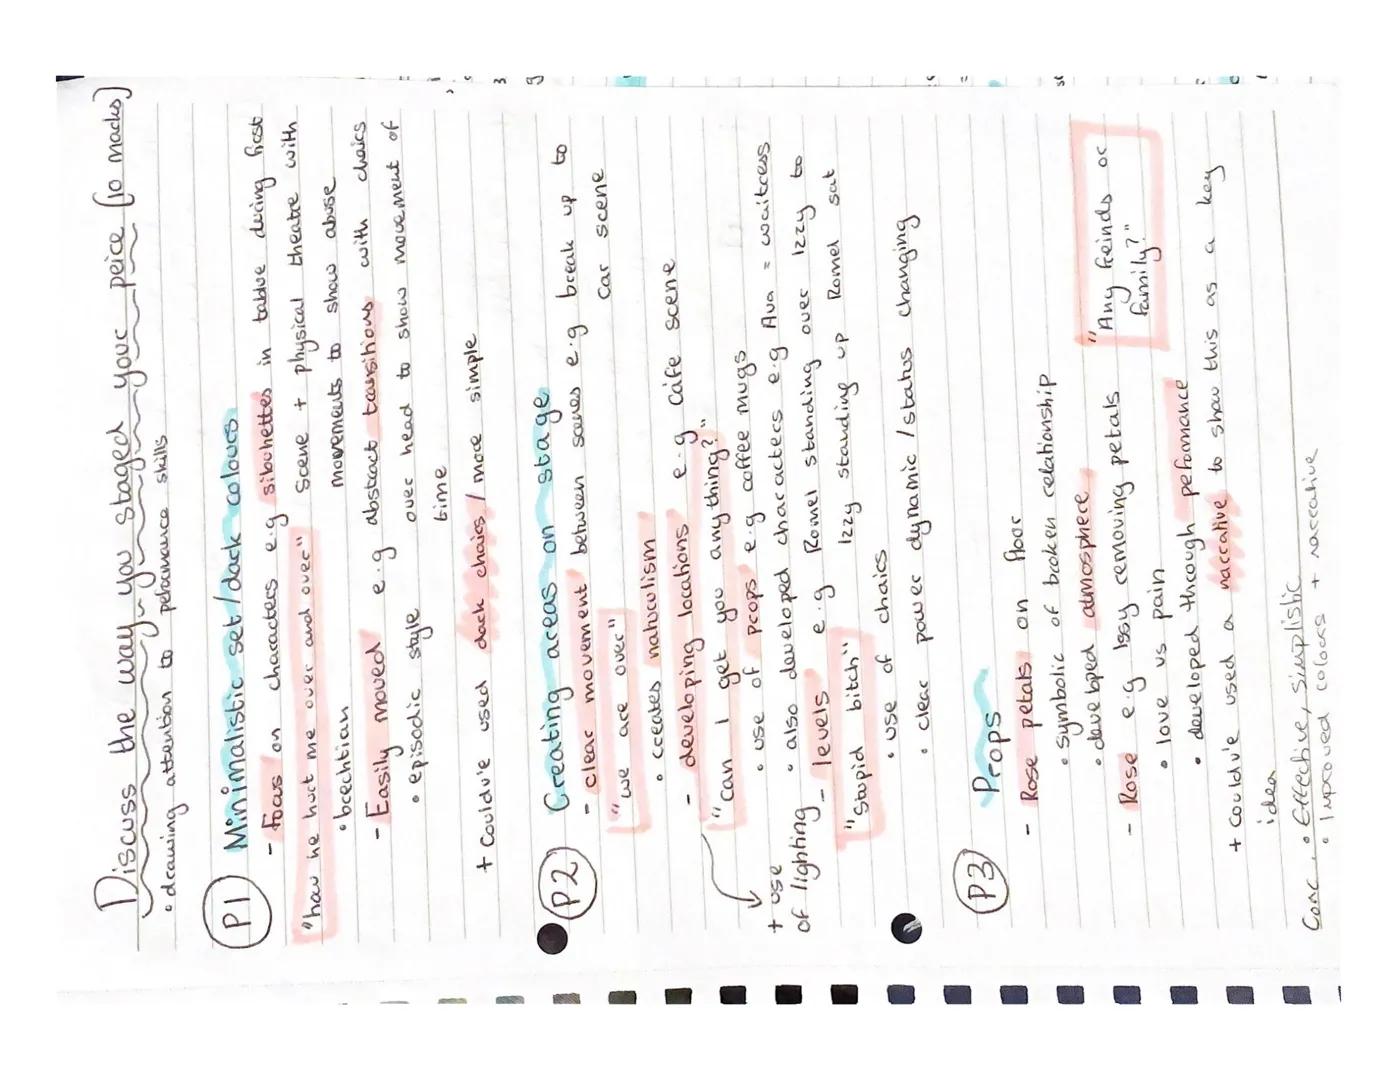 Discuss the way you staged your peice (10 marks)
• drawing attention to peformance skills
P1 Minimalistic set/dark colours
- Focus on characters e.g silouhettes in tablue during first
"how he hurt me over and over" scene + physical theatre with
• brechtian movements to show abuse
- Easily moved e.g abstact transitions with chairs
• episodic style over head to show movement of
time
+ Could've used dark chairs / more simple
P2 Creating areas on stage
- clear movement between scenes e.g break up to
"we are over" car scene
• creates naturulism
- developing locations e.g cafe scene
"can I get you anything?"
• use of props e.g coffee mugs
+ use • also developed characters e.g Ava = waitress
of lighting - levels e.g Romel standing over Izzy to
"Stupid bitch" Izzy standing up Romel sat
• use of chairs
• clear power dynamic / status changing
P3 Props
- Rose petals on floor
• symbolic of broken relationship
• developed atmosphere
- Rose e.g Issy removing petals "Any freinds or
• love vs pain family?"
• developed through peformance
+ could've used a narrative to show this as a key
idea
Conc. • Effective, Simplistic
• Improved colours + narrative